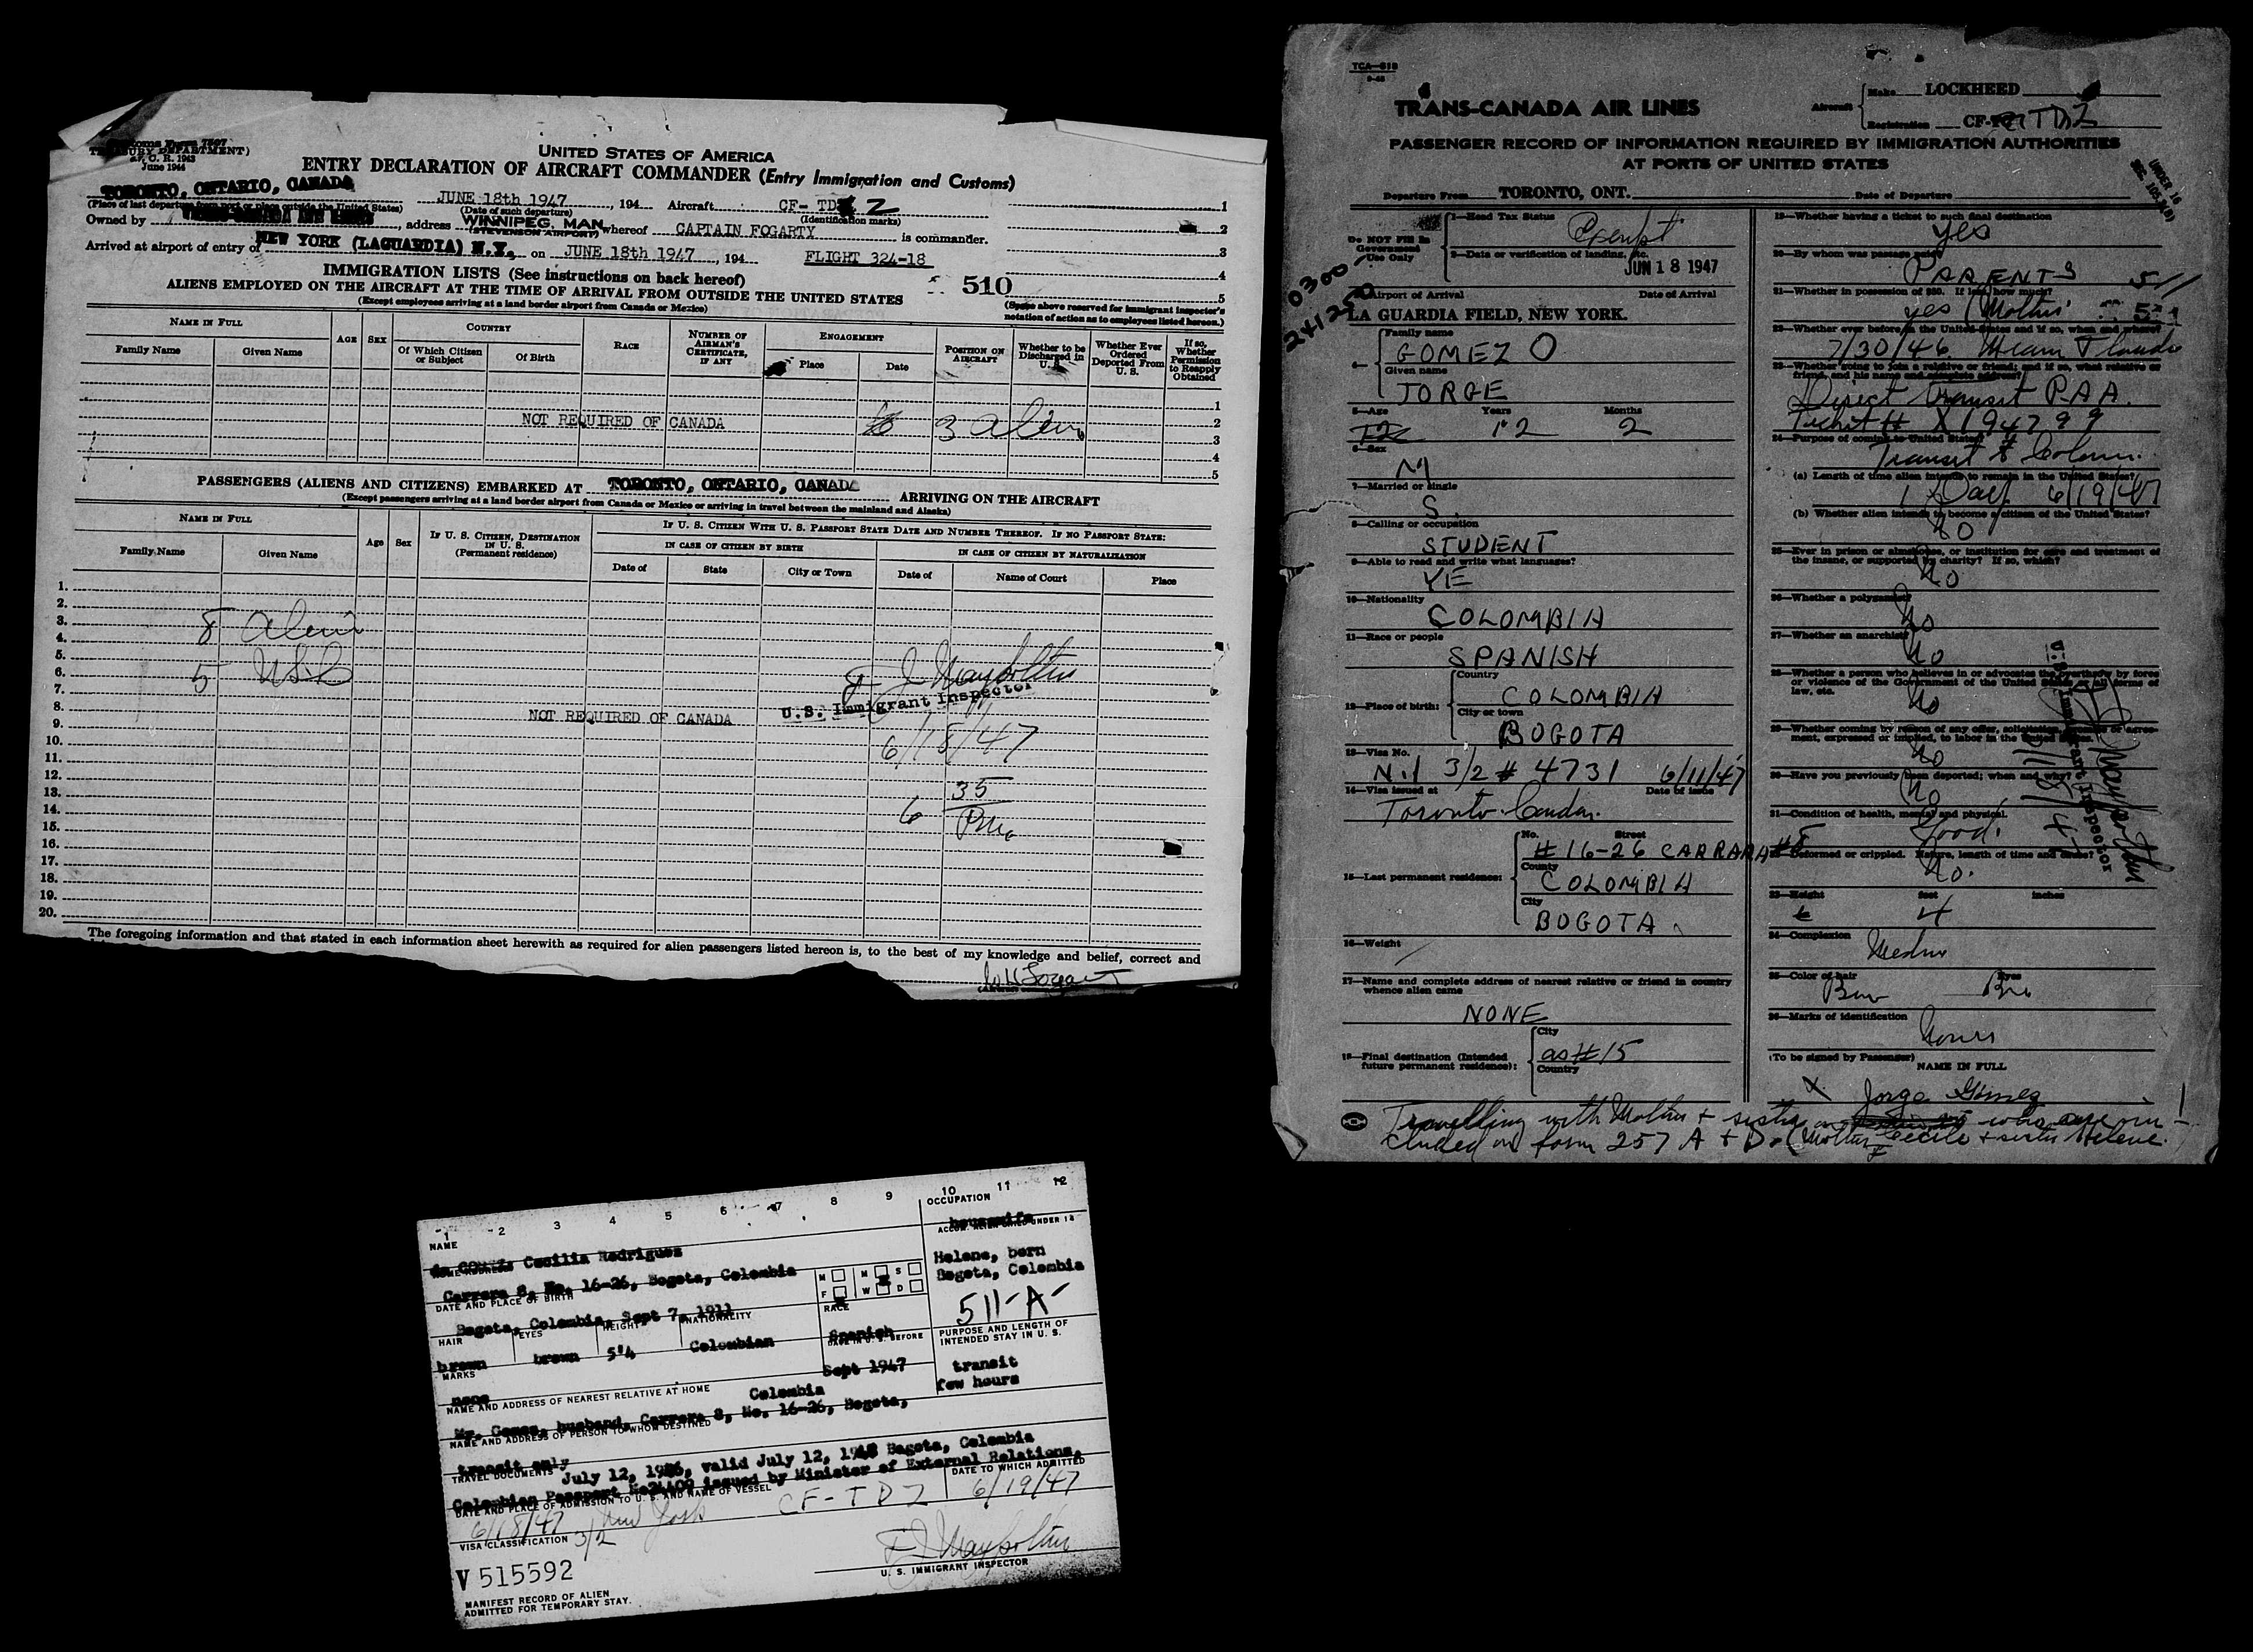 Customs Form 7507
TREASURY DEPARTMENT)
C. R. 1943
June 1944
UNITED STATES OF AMERICA
ENTRY DECLARATION OF AIRCRAFT COMMANDER (Entry Immigration and Customs)
TORONTO, ONTARIO, CANADA JUNE 18th 1947, 194 Aircraft CF- TD Z 1
(Place of last departure from port or place outside the United States) (Date of such departure) (Identification marks)
Owned by TRANS-CANADA AIR LINES, address WINNIPEG, MAN. (STEVENSON AIRPORT) whereof CAPTAIN FOGARTY is commander. 2
Arrived at airport of entry of NEW YORK (LAGUARDIA) N.Y. on JUNE 18th 1947, 194 FLIGHT 324-18 3
IMMIGRATION LISTS (See instructions on back hereof) 4
ALIENS EMPLOYED ON THE AIRCRAFT AT THE TIME OF ARRIVAL FROM OUTSIDE THE UNITED STATES 510 5
(Except employees arriving at a land border airport from Canada or Mexico) (Space above reserved for immigrant inspector's notation of action as to employees listed hereon.)
NAME IN FULL AGE SEX COUNTRY RACE NUMBER OF AIRMAN'S CERTIFICATE, IF ANY ENGAGEMENT POSITION ON AIRCRAFT Whether to be Discharged in U.S. Whether Ever Ordered Deported From U. S. If so, Whether Permission to Reapply Obtained
Family Name Given Name Of Which Citizen or Subject Of Birth Place Date
1
NOT REQUIRED OF CANADA 3 Alien 2
3
4
5
PASSENGERS (ALIENS AND CITIZENS) EMBARKED AT TORONTO, ONTARIO, CANADA ARRIVING ON THE AIRCRAFT
(Except passengers arriving at a land border airport from Canada or Mexico or arriving in travel between the mainland and Alaska)
NAME IN FULL Age Sex IF U. S. CITIZEN, DESTINATION IN U. S. (Permanent residence) IF U. S. CITIZEN WITH U. S. PASSPORT STATE DATE AND NUMBER THEREOF. IF NO PASSPORT STATE:
IN CASE OF CITIZEN BY BIRTH IN CASE OF CITIZEN BY NATURALIZATION
Family Name Given Name Date of State City or Town Date of Name of Court Place
1.
2.
3. 8 Alien
4.
5.
6. 5 USC
7.
8. U.S. Immigrant Inspector
9. NOT REQUIRED OF CANADA
10. 6/18/47
11.
12.
13. 35
14. 6
15. PM
16.
17.
18.
19.
20.
The foregoing information and that stated in each information sheet herewith as required for alien passengers listed hereon is, to the best of my knowledge and belief, correct and
TCA—818
TRANS-CANADA AIR LINES
Aircraft Make LOCKHEED
Registration CF-TDZ
PASSENGER RECORD OF INFORMATION REQUIRED BY IMMIGRATION AUTHORITIES
AT PORTS OF UNITED STATES
UNDER 16
Departure From TORONTO, ONT. Date of Departure
Do NOT Fill in Government Use Only
1—Head Tax Status Exempt
2—Date or verification of landing, etc. JUN 18 1947
0300-
241250
Airport of Arrival Date of Arrival
LA GUARDIA FIELD, NEW YORK.
4— Family name
GOMEZ O
Given name
JORGE
5—Age Years Months
12 12 2
6—Sex
M
7—Married or single
S.
8—Calling or occupation
STUDENT
9—Able to read and write what languages?
YE
10—Nationality
COLOMBIA
11—Race or people
SPANISH
12—Place of birth: Country
COLOMBIA
City or town
BOGOTA
13—Visa No.
N.I 3/2 # 4731 6/11/47
14—Visa issued at Date of issue
Toronto Canada.
15—Last permanent residence: No. Street
# 16-26 CARRARA #8
County
COLOMBIA
City
BOGOTA
16—Weight
17—Name and complete address of nearest relative or friend in country whence alien came
NONE
18—Final destination (Intended future permanent residence): City
as #15
Country
19—Whether having a ticket to such final destination
Yes
20—By whom was passage paid?
PARENTS 511
21—Whether in possession of $50. If less, how much?
yes (Mother
22—Whether ever before in the United States and if so, when and where?
7/30/46 Miami Florida
23—Whether going to join a relative or friend; and if so, what relative or friend, and his name and complete address?
Direct transit P.A.A.
Ticket # X194799
24—Purpose of coming to United States?
Transit to Colom.
(a) Length of time alien intends to remain in the United States?
1 Day 6/19/47
(b) Whether alien intends to become a citizen of the United States?
No
25—Ever in prison or almshouse, or institution for care and treatment of the insane, or supported by charity? If so, which?
No
26—Whether a polygamist?
No
27—Whether an anarchist?
No
28—Whether a person who believes in or advocates the overthrow by force or violence of the Government of the United States or all forms of law, etc.
No
29—Whether coming by reason of any offer, solicitation, promise or agreement, expressed or implied, to labor in the United States.
No
30—Have you previously been deported; when and why?
No
31—Condition of health, mental and physical.
Good.
32—Deformed or crippled. Nature, length of time and cause?
No.
33—Height feet inches
4
34—Complexion
Medium
35—Color of hair Eyes
Brn Brn
36—Marks of identification
None
U.S. Immigrant Inspector
6/18/47
(To be signed by Passenger)
NAME IN FULL
X Jorge Gómez
Travelling with Mother + sister who are in-
cluded on form 257 A + D. (Mother Cecile + sister Helene.
1 2 3 4 5 6 7 8 9 10 11 12
NAME OCCUPATION
de GOMEZ, Cecilia Rodriguez housewife
HOME ADDRESS ACCOM. ALIEN CHILD UNDER 14
Carrera 8, No. 16-26, Bogota, Colombia M F M S W D Helene, born Bogota, Colombia
DATE AND PLACE OF BIRTH
Bogota, Colombia, Sept 7, 1911 RACE 511-A-
HAIR EYES HEIGHT NATIONALITY Spanish
brown brown 5'4 Colombian
PURPOSE AND LENGTH OF INTENDED STAY IN U. S.
MARKS DATE IN U. S. BEFORE
none Sept 1947 transit few hours
NAME AND ADDRESS OF NEAREST RELATIVE AT HOME Colombia
Mr. Gomez, husband, Carrera 8, No. 16-26, Bogota,
NAME AND ADDRESS OF PERSON TO WHOM DESTINED
transit only
TRAVEL DOCUMENTS July 12, 1946, valid July 12, 1948 Bogota, Colombia
Colombian Passport No24400 issued by Minister of External Relations,
DATE AND PLACE OF ADMISSION TO U. S. AND NAME OF VESSEL DATE TO WHICH ADMITTED
6/18/47 New York CF-TDZ 6/19/47
VISA CLASSIFICATION 3/2
V 515592
U. S. IMMIGRANT INSPECTOR
MANIFEST RECORD OF ALIEN
ADMITTED FOR TEMPORARY STAY.